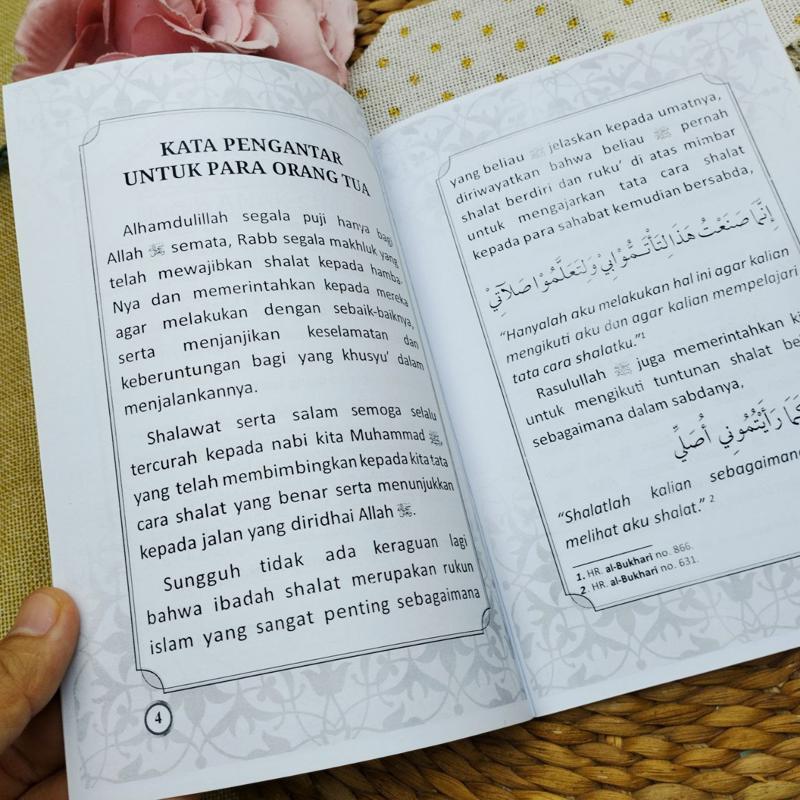 KATA PENGANTAR
UNTUK PARA ORANG TUA
Alhamdulillah segala puji hanya bagi
Allah ﷻ semata, Rabb segala makhluk yang
telah mewajibkan shalat kepada hamba-
Nya dan memerintahkan kepada mereka
agar melakukan dengan sebaik-baiknya,
serta menjanjikan keselamatan dan
keberuntungan bagi yang khusyu' dalam
menjalankannya.
Shalawat serta salam semoga selalu
tercurah kepada nabi kita Muhammad ﷺ,
yang telah membimbingkan kepada kita tata
cara shalat yang benar serta menunjukkan
kepada jalan yang diridhai Allah ﷻ.
Sungguh tidak ada keraguan lagi
bahwa ibadah shalat merupakan rukun
islam yang sangat penting sebagaimana
4
yang beliau ﷺ jelaskan kepada umatnya,
diriwayatkan bahwa beliau ﷺ pernah
shalat berdiri dan ruku' di atas mimbar
untuk mengajarkan tata cara shalat
kepada para sahabat kemudian bersabda,
إِنَّمَا صَنَعْتُ هَذَا لِتَأْتَمُّوْا بِيْ وَلِتَعَلَّمُوْا صَلَاتِيْ
"Hanyalah aku melakukan hal ini agar kalian
mengikuti aku dan agar kalian mempelajari
tata cara shalatku."1
Rasulullah ﷺ juga memerintahkan
untuk mengikuti tuntunan shalat
sebagaimana dalam sabdanya,
رَأَيْتُمُونِي أُصَلِّي
"Shalatlah kalian sebagaimana
melihat aku shalat." 2
1. HR. al-Bukhari no. 866.
2. HR. al-Bukhari no. 631.